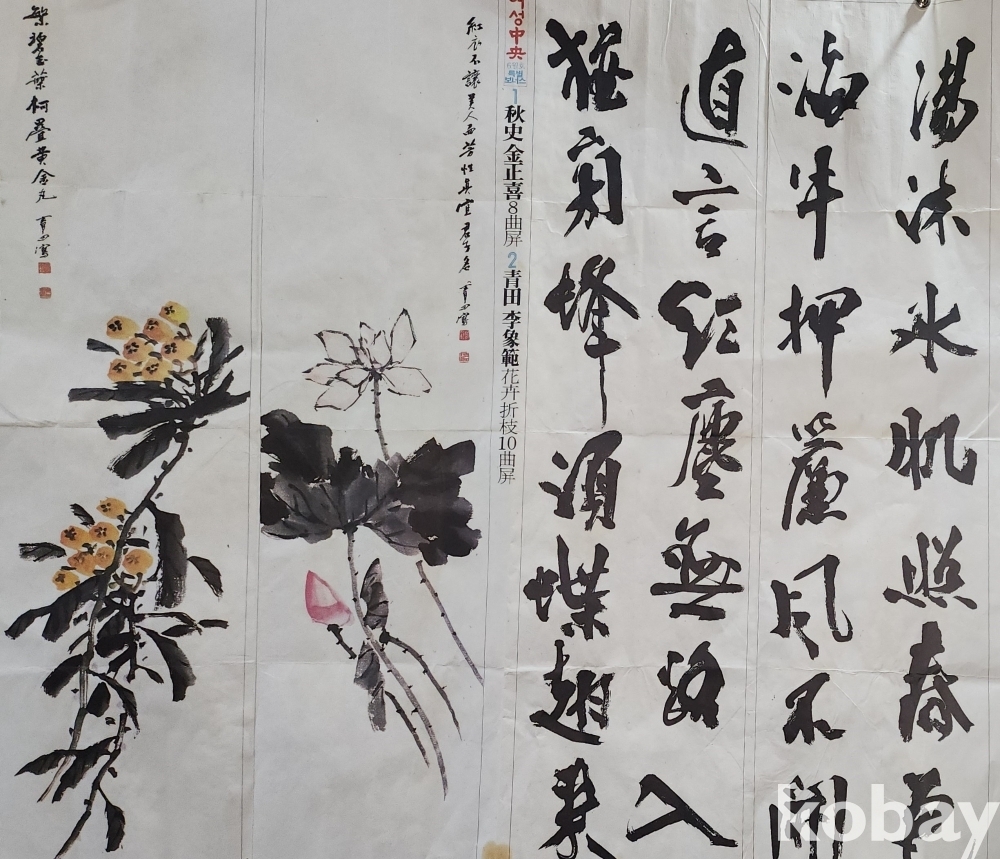 湯沐水肌照春
海牛押簾風不開
直言紅塵無路入
猶旁蜂須蝶翅來
여성中央
특별
보너스
1 秋史 金正喜8曲屏 2 青田 李象範花卉折枝10曲屏
紅衣不讓美人面芳性眞宜君子名
繁碧玉葉柯疊黄金丸
kobay